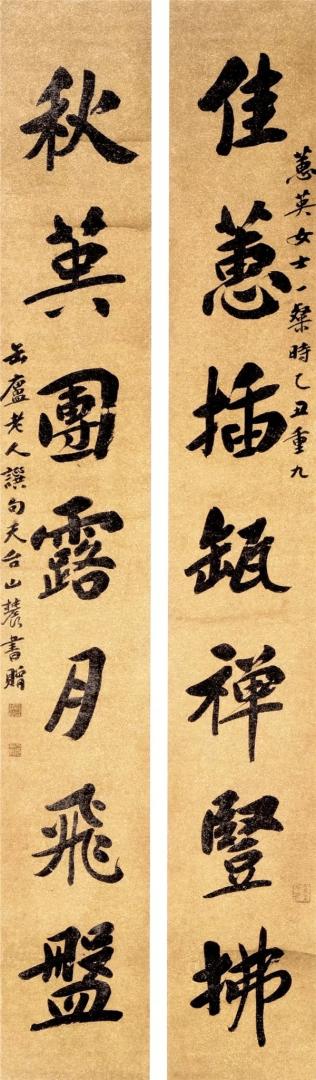 蕙英女士一粲時乙丑重九
佳蕙插缻禪豎拂
秋英團露月飛盤
缶廬老人譔句天台山農書贈